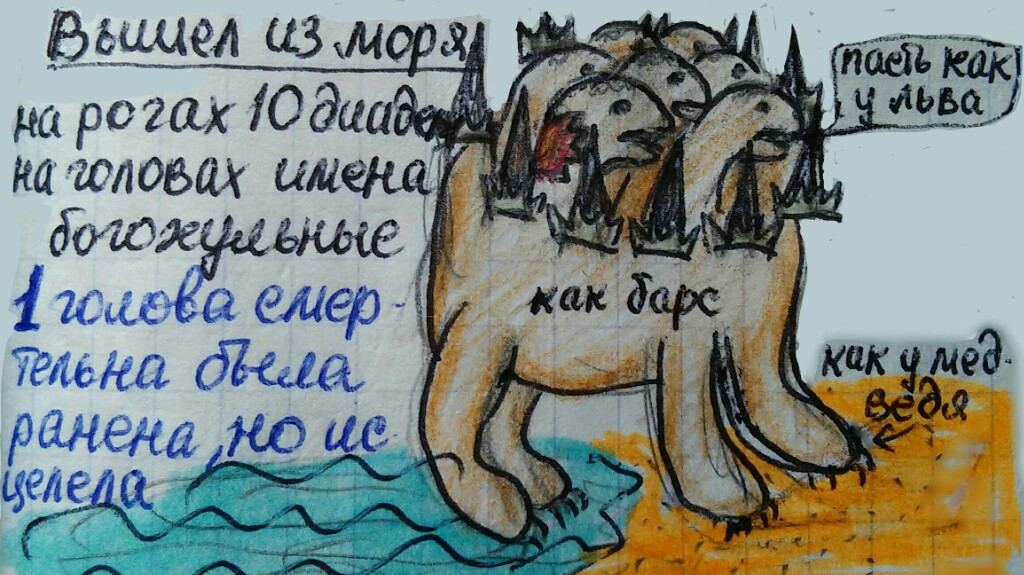 Вышел из моря
на рогах 10 диадем
на головах имена
богохульные
1 голова смер-
тельна была
ранена, но ис
целела
пасть как
у льва
как барс
как у мед-
ведя